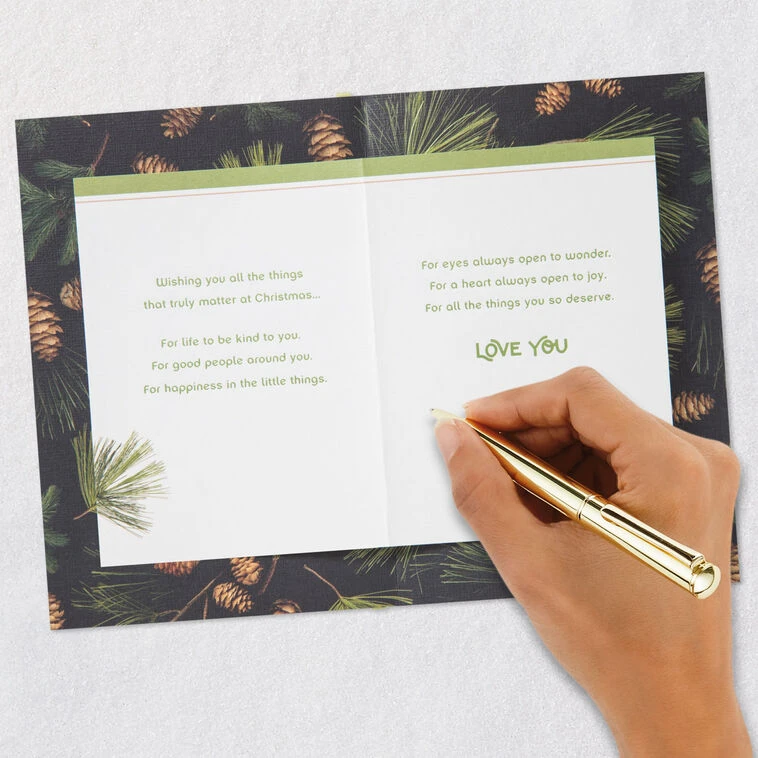 Wishing you all the things
that truly matter at Christmas...
For life to be kind to you.
For good people around you.
For happiness in the little things.
For eyes always open to wonder.
For a heart always open to joy.
For all the things you so deserve.
LOVE YOU